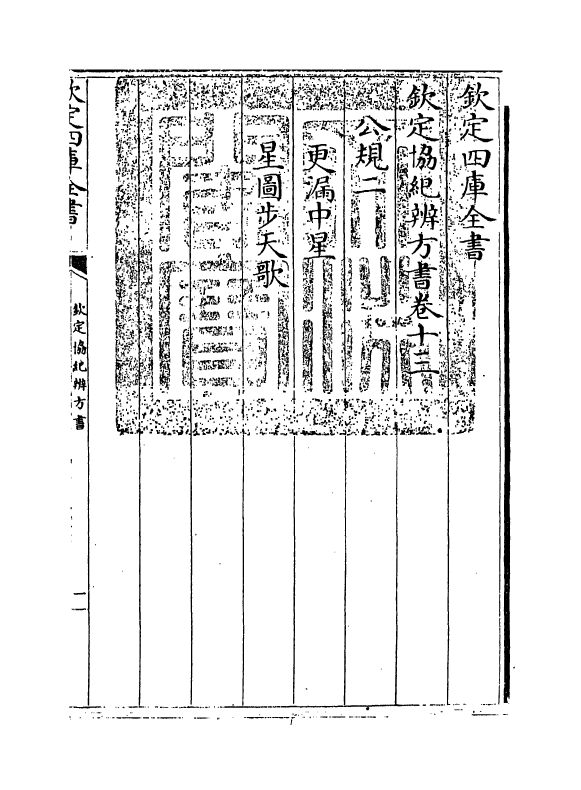 欽定四庫全書
欽定協紀辨方書卷十三
公規二
更漏中星
星圖步天歌
欽定四庫全書
欽定協紀辨方書